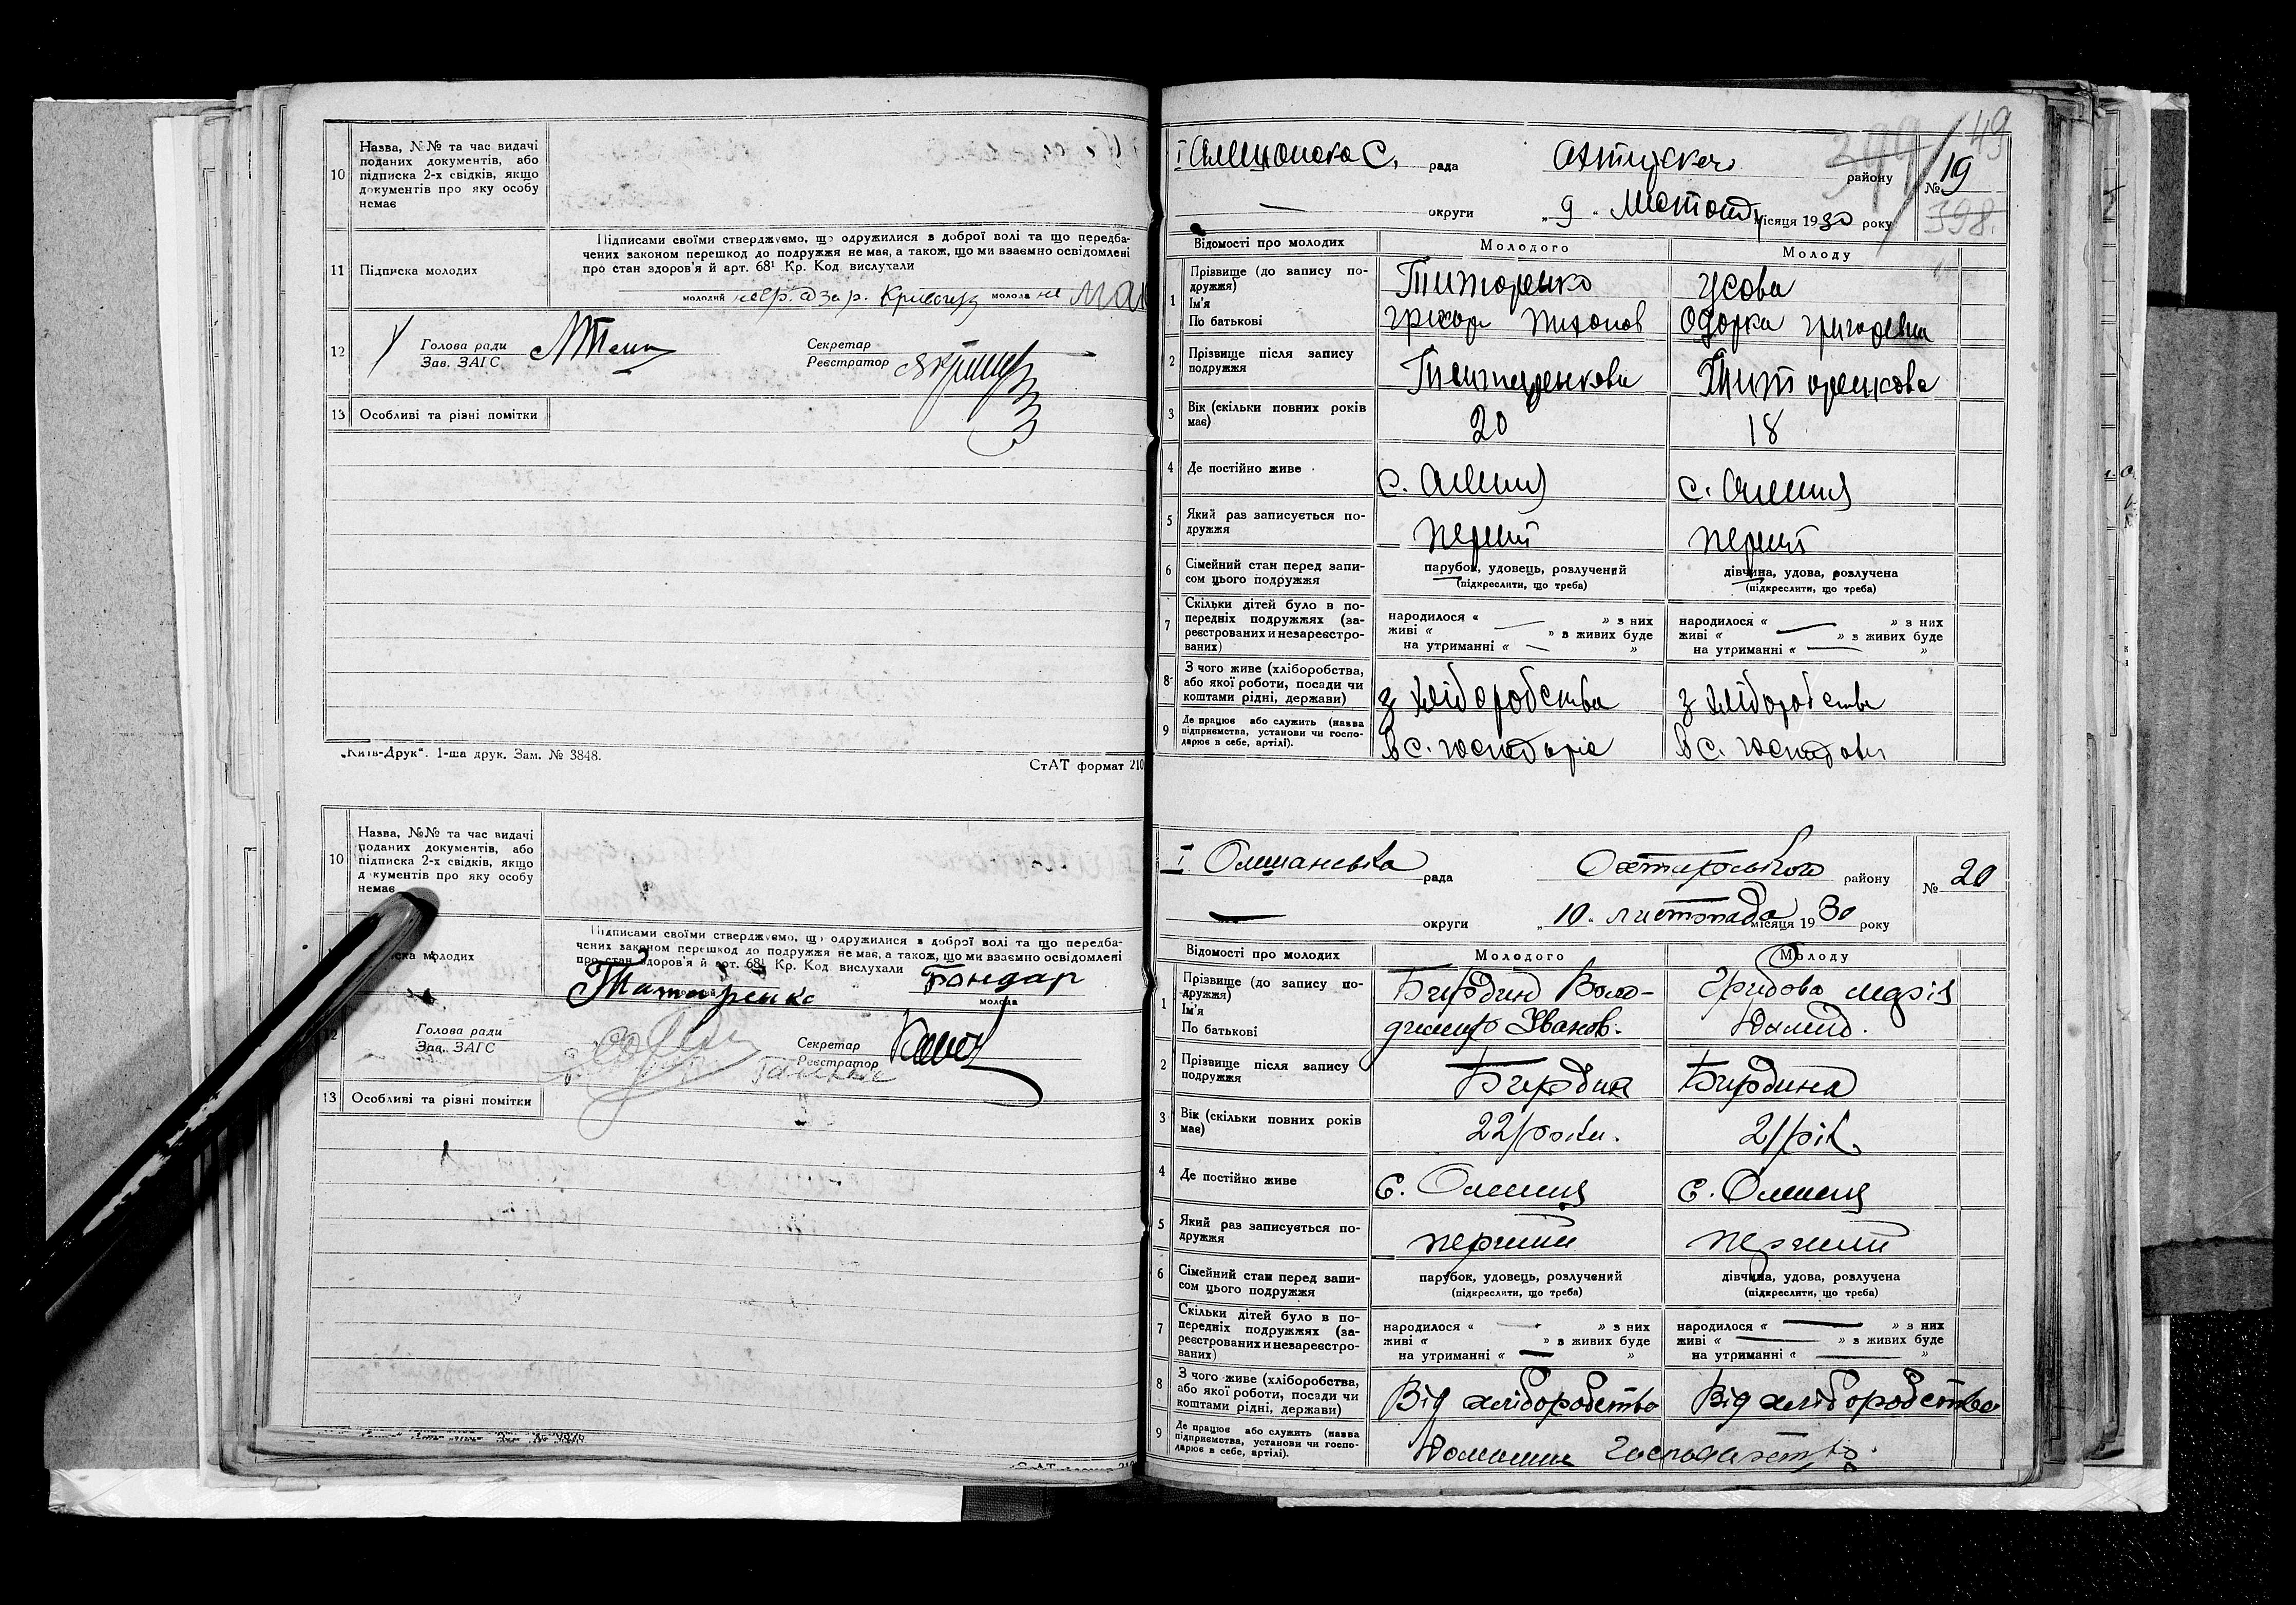 10 Назва, №№ та час видачі
поданих документів, або
підписка 2-х свідків, якщо
документів про яку особу
немає
11 Підписка молодих
Підписами своїми стверджуємо, що одружилися з доброї волі та що передба-
чених законом перешкод до подружжя не має, а також, що ми взаємно освідомлені
про стан здоров'я й арт. 68¹ Кр. Код вислухали
молодий молода не
12 Голова ради
Зав. ЗАГС
Секретар
Реєстратор
13 Особливі та різні помітки
„Київ-Друк“. 1-ша друк. Зам. № 3848.
СтАТ формат 210
10 Назва, №№ та час видачі
поданих документів, або
підписка 2-х свідків, якщо
документів про яку особу
немає
молодих
Підписами своїми стверджуємо, що одружилися з доброї волі та що передба-
чених законом перешкод до подружжя не має, а також, що ми взаємно освідомлені
про стан здоров'я й арт. 68¹ Кр. Код вислухали
Титаренко Бондар
молода
Голова ради
Зав. ЗАГС
Секретар
Реєстратор
13 Особливі та різні помітки
49
399
І рада району № 19
округи „ 9 “ місяця 1930 року 398.
Відомості про молодих Молодого Молоду
1 Прізвище (до запису по-
дружжя)
Ім'я
По батькові
Титоренко Усова
Одорка
2 Прізвище після запису
подружжя
Титаренкови Титоренкова
3 Вік (скільки повних років
має)
20 18
4 Де постійно живе
с. Олешня с. Олешня
5 Який раз записується по-
дружжя
перший перший
6 Сімейний стан перед запи-
сом цього подружжя
парубок, удовець, розлучений
(підкреслити, що треба)
дівчина, удова, розлучена
(підкреслити, що треба)
7 Скільки дітей було в по-
передніх подружжях (за-
реєстрованих и незареєстро-
ваних)
народилося « — » з них
живі « » з живих буде
на утриманні « — »
народилося « » з них
живі « — » з живих буде
на утриманні « — »
8 З чого живе (хліборобства,
або якої роботи, посади чи
коштами рідні, держави)
з хліборобства з хліборобства
9 Де працює або служить (назва
підприємства, установи чи госпо-
дарює в себе, артілі).
в с. господаріє в с.
І рада Охтирського району № 20
— округи „ 10 “ листопада місяця 1930 року
Відомості про молодих Молодого Молоду
1 Прізвище (до запису по-
дружжя)
Ім'я
По батькові
Бирдин Воло- Грибова Марія
димир Іванов. Демид.
2 Прізвище після запису
подружжя
Бирдин Бирдина
3 Вік (скільки повних років
має)
22 роки. 21 рік
4 Де постійно живе
с. Олешня с. Олешня
5 Який раз записується по-
дружжя
перший перший
6 Сімейний стан перед запи-
сом цього подружжя
парубок, удовець, розлучений
(підкреслити, що треба)
дівчина, удова, розлучена
(підкреслити, що треба)
7 Скільки дітей було в по-
передніх подружжях (за-
реєстрованих и незареєстро-
ваних)
народилося « — » з них
живі « » з живих буде
на утриманні « — »
народилося « — » з них
живі « — » з живих буде
на утриманні « — »
8 З чого живе (хліборобства,
або якої роботи, посади чи
коштами рідні, держави)
Від хліборобства Від хліборобства
9 Де працює або служить (назва
підприємства, установи чи госпо-
дарює в себе, артілі).
Домашнє господарство.